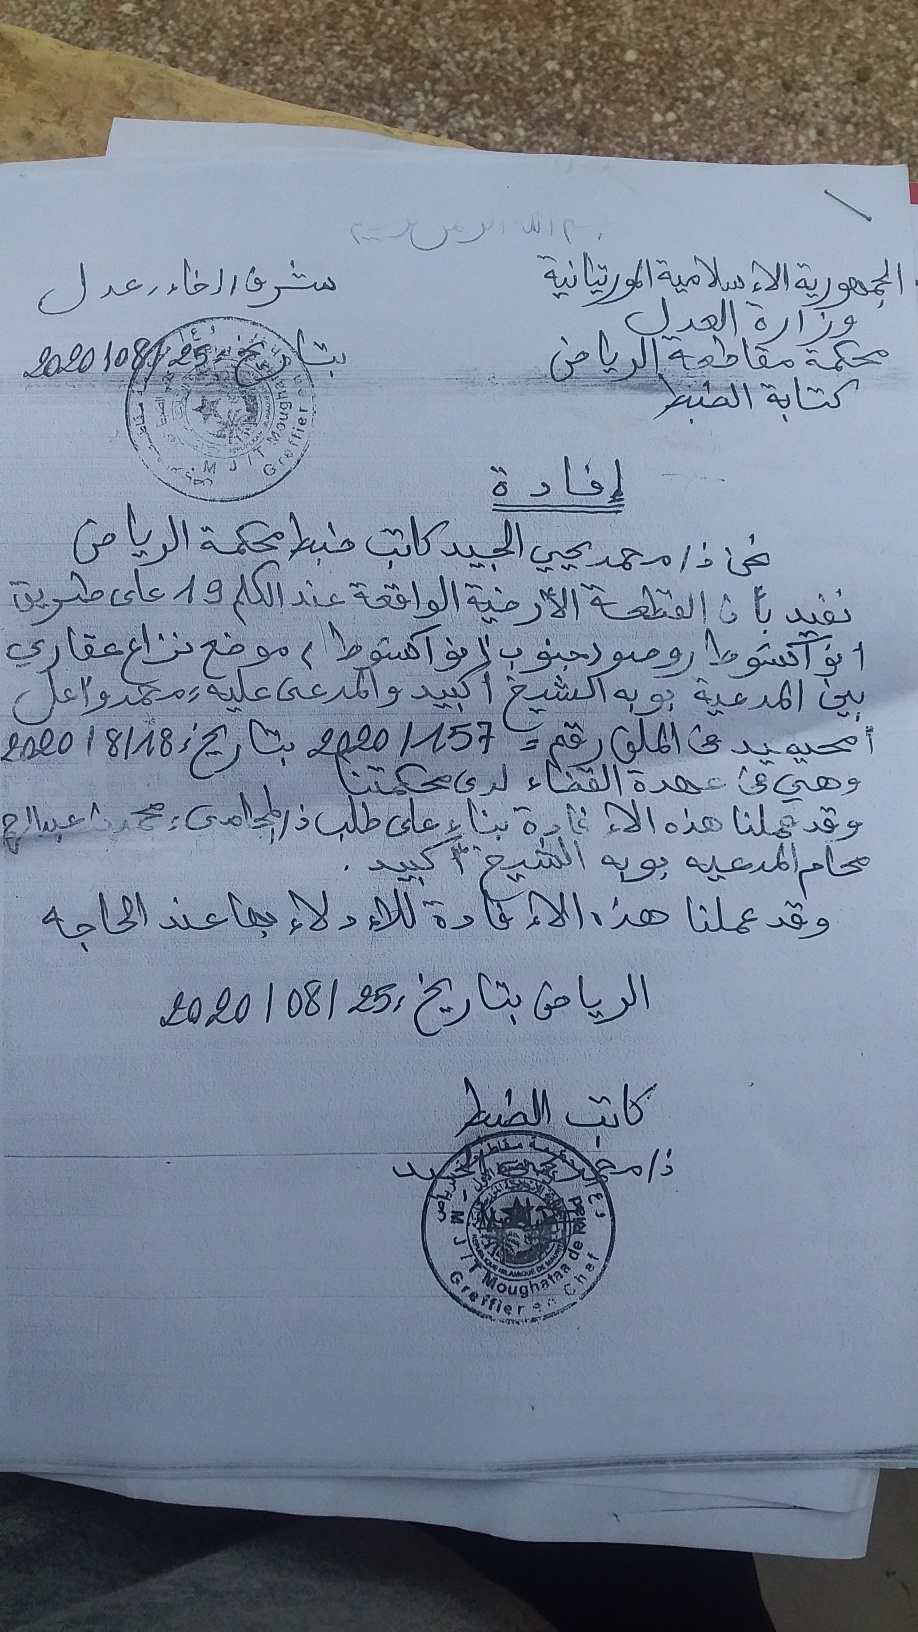 الجمهورية الإسلامية الموريتانية
شرف إخاء عدل
وزارة العدل
محكمة مقاطعة الرياض
بتاريخ: 25/08/2020
كتابة الضبط
M J / T Moughataa
Greffier
إفادة
نحن ذ/ محمد يحيى المجيد كاتب ضبط محكمة الرياض
نفيد بأن القطعة الأرضية الواقعة عند الكلم 19 على طريق
انواكشوط روصو (جنوب انواكشوط) موضع نزاع عقاري
بين المدعية بوبه الشيخ اكبيد والمدعى عليه: محمدو اعل
امحيميد في الملف رقم = 157/2020 بتاريخ: 18/8/2020
وهي في عهدة القضاء لدى محكمتنا
وقد عملنا هذه الإفادة بناء على طلب ذ/ المحامي:
محام المدعيه بوبه الشيخ اكبيد.
وقد عملنا هذه الإفادة للإدلاء بها عند الحاجه
الرياض بتاريخ: 25/08/2020
كاتب الضبط
ذ/ محمد يحيى المجيد
M J / T Moughataa de Riad
REPUBLIQUE ISLAMIQUE DE MAURITANIE
Greffier en Chef